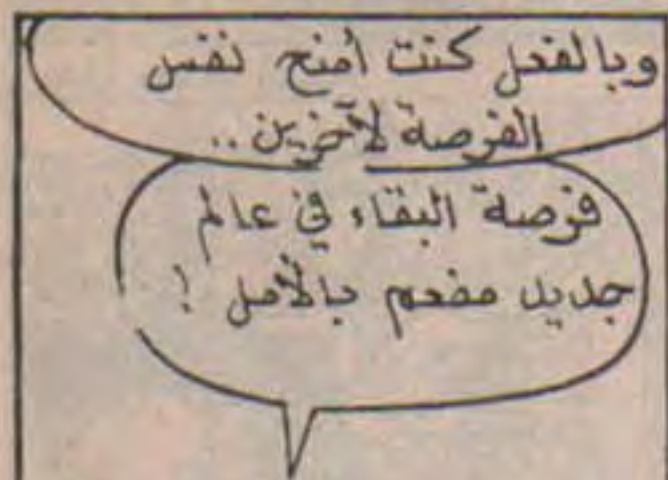 وبالفعل كنت أمنح نفس
الفرصة لآخرين ..
فرصة البقاء في عالم
جديد مفعم بالأمل !